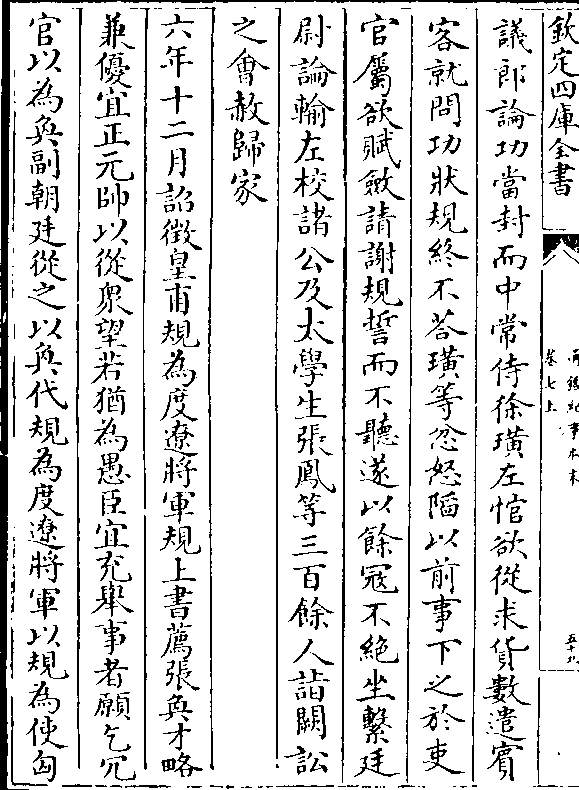 欽定四庫全書
通鑑紀事本末
卷七上
五十九
議郎論功當封而中常侍徐璜左悺欲從求貨數遣賓
客就問功狀規終不荅璜等忿怒陷以前事下之於吏
官屬欲賦斂請謝規誓而不聽遂以餘寇不絕坐繫廷
尉論輸左校諸公及太學生張鳳等三百餘人詣闕訟
之會赦歸家
六年十二月詔徵皇甫規為度遼將軍規上書薦張奐才略
兼優宜正元帥以從衆望若猶為愚臣宜充舉事者願乞冗
官以為奐副朝廷從之以奐代規為度遼將軍以規為使匈